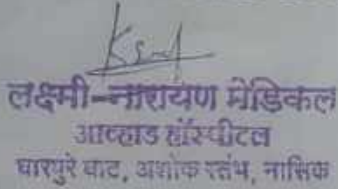 लक्ष्मी-नारायण मेडिकल
आव्हाड हॉस्पीटल
घारपुरे घाट, अशोक स्तंभ, नासिक